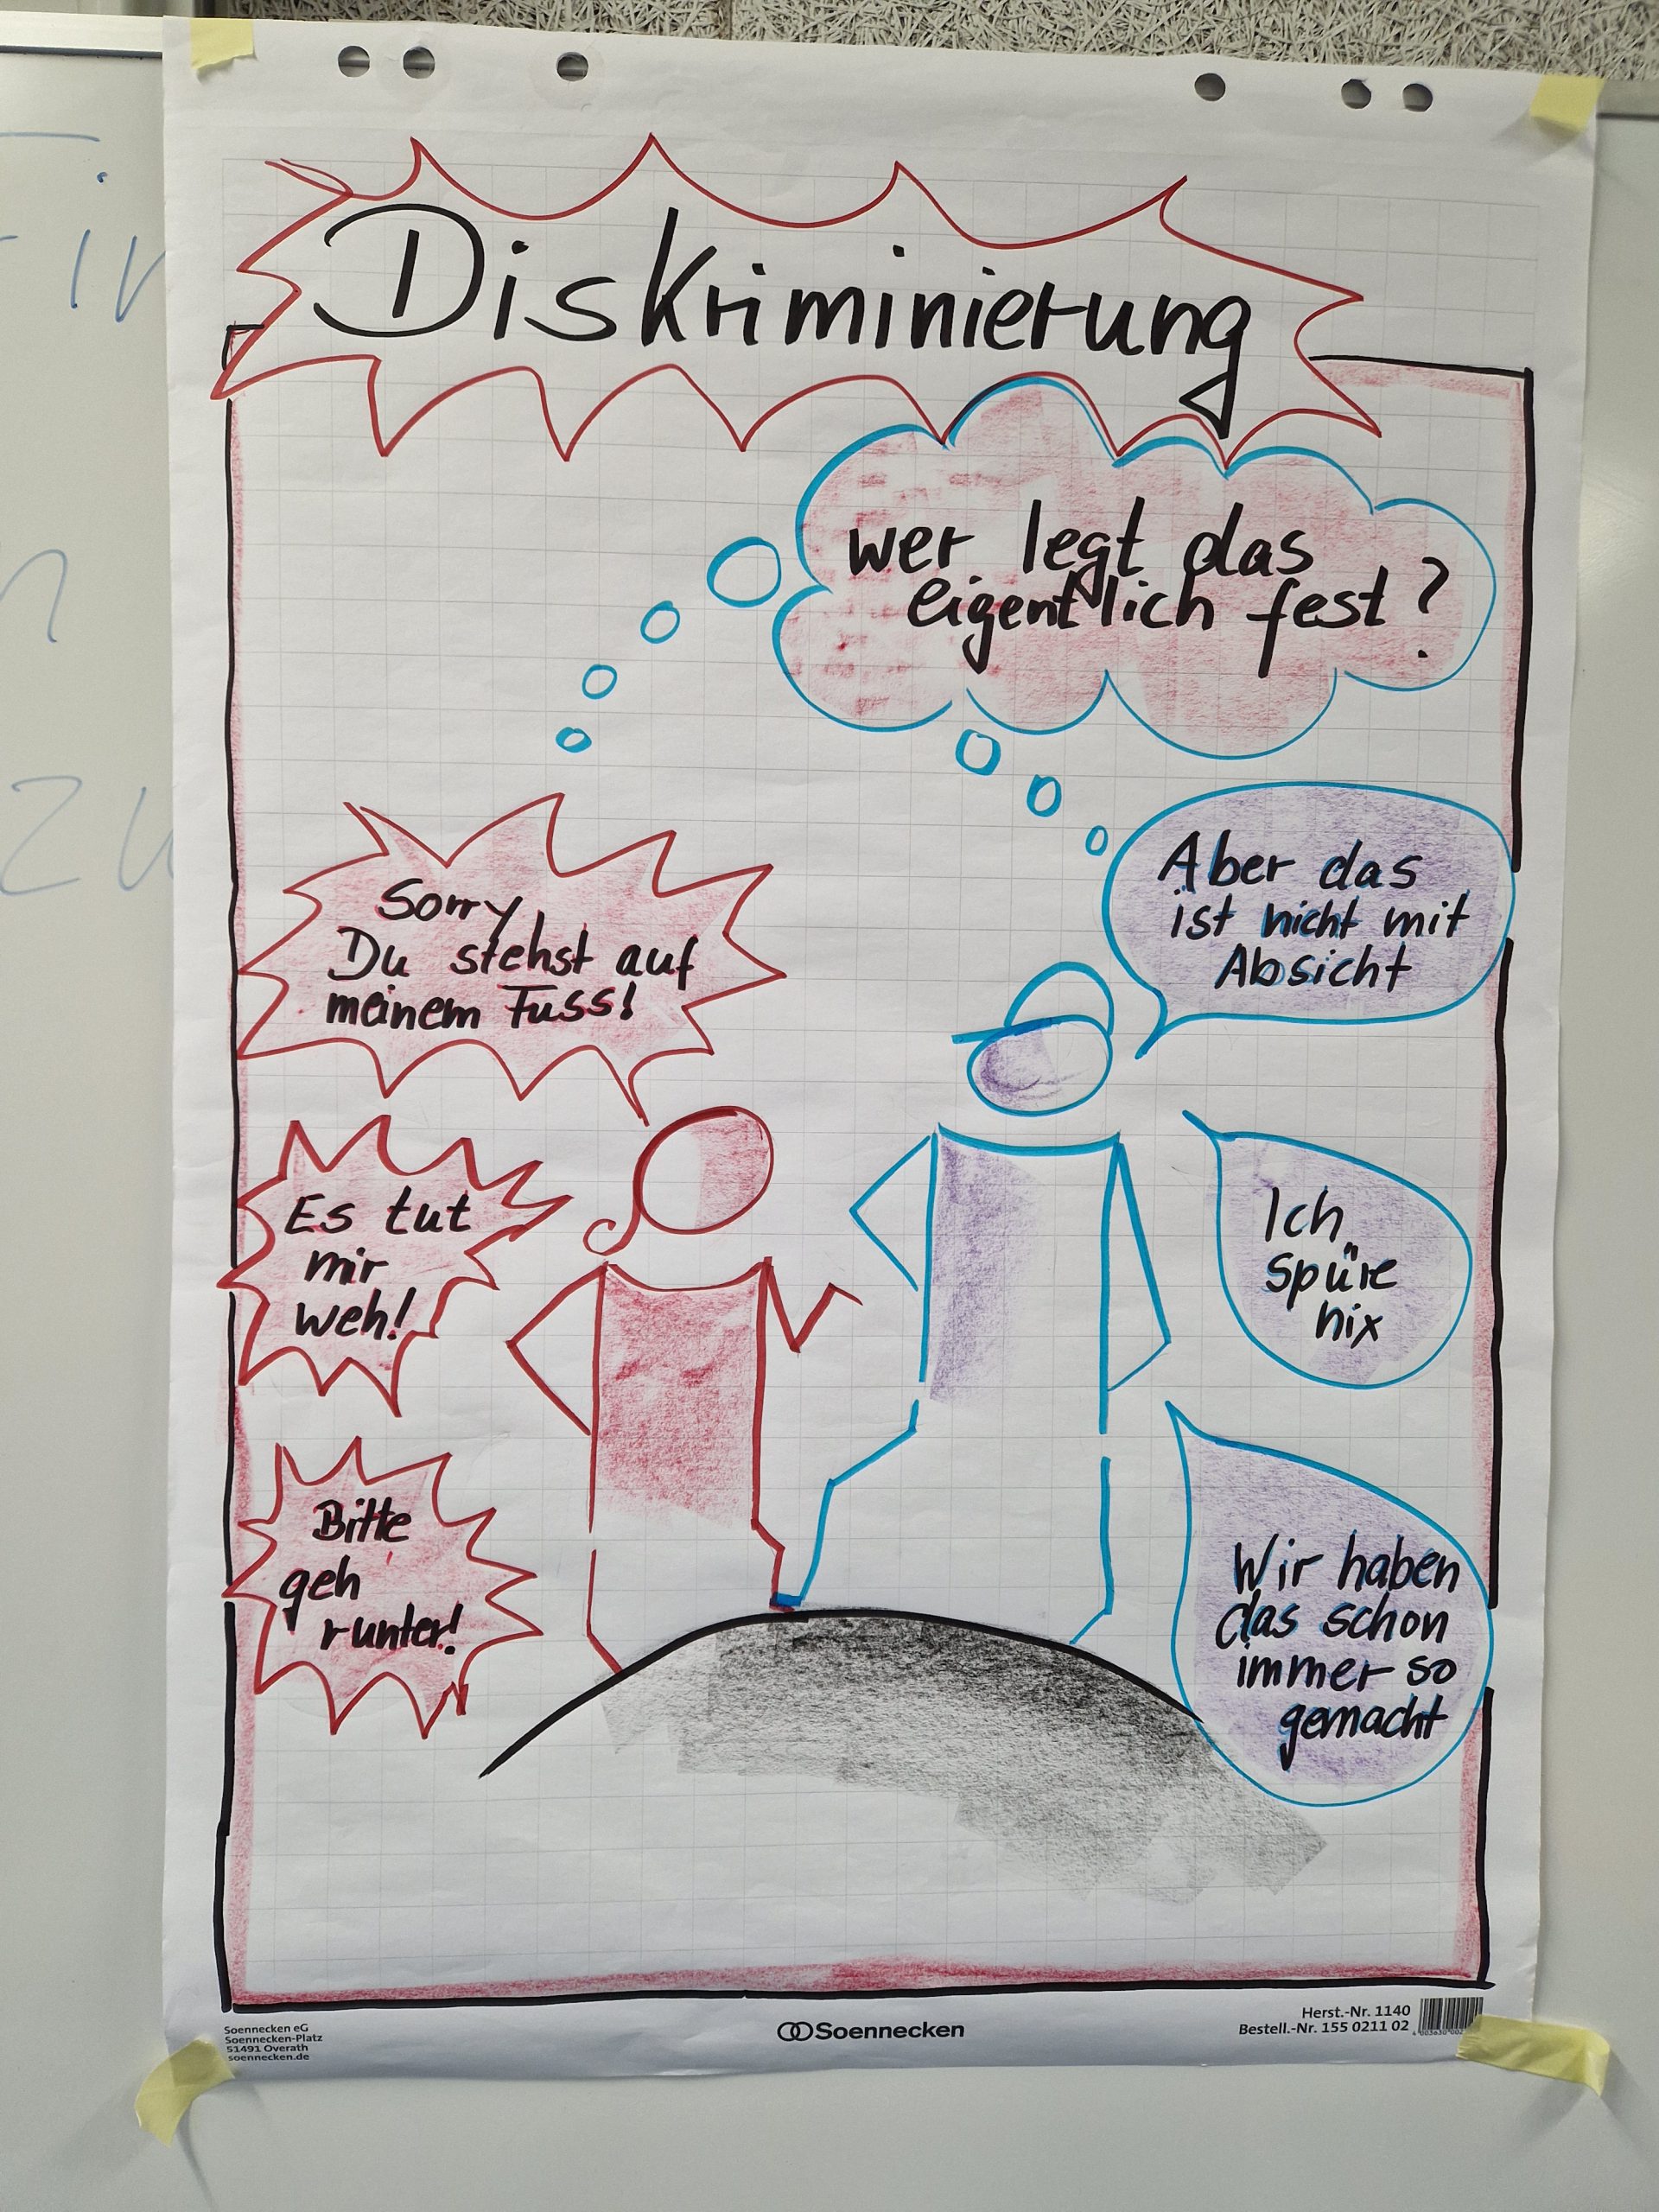 Diskriminierung
wer legt das
eigentlich fest?
Aber das
ist nicht mit
Absicht
Sorry
Du stehst auf
meinem Fuss!
Es tut
mir
weh!
Ich
spüre
nix
Bitte
geh
runter!
Wir haben
das schon
immer so
gemacht
Soennecken eG
Soennecken-Platz
51491 Overath
soennecken.de
Soennecken
Herst.-Nr. 1140
Bestell.-Nr. 155 0211 02